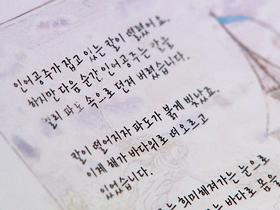 인어공주가 잡고 있는 칼이 떨렸어요.
하지만 다음 순간 인어공주는 칼을
멀리 파도 속으로 던져 버렸습니다.
칼이 떨어지자 파도가 붉게 빛났고,
이제 해가 바다위로 떠오르고
있었습니다.
는 희미해져가는 눈으로
는 바다로 몸을